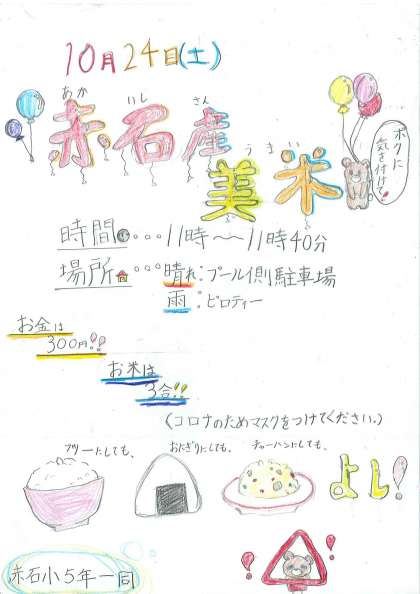 10月24日(土)
あか いし さん
赤石産
うまい
美米
ボクに
気を付けて!
時間…11時〜11時40分
場所…晴れ:プール側駐車場
雨:ピロティー
お金は
300円!!
お米は
3合!!
(コロナのためマスクをつけてください。)
フツーにしても、 おにぎりにしても、 チャーハンにしても、
よし!
赤石小5年一同